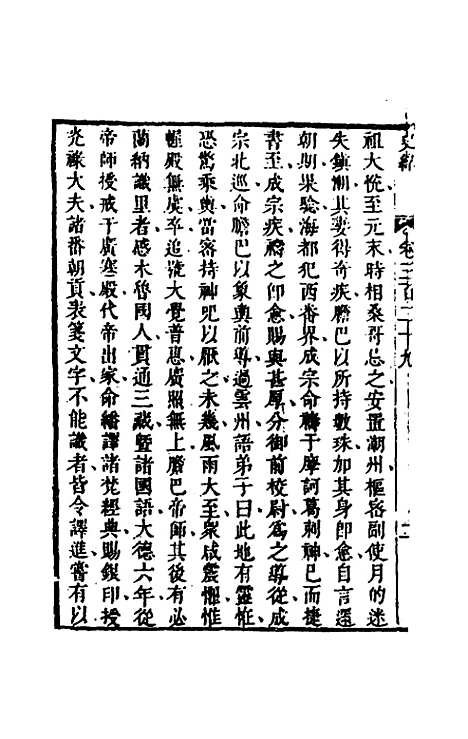 史緯　卷三百二十九
祖大悅至元末時相桑哥忌之安置潮州樞密副使月的迷
失鎮潮其妻得奇疾膽巴以所持數珠加其身即愈自言還
朝期果驗海都犯西番界成宗命禱于摩訶葛剌神已而捷
書至成宗疾禱之即愈賜與甚厚分御前校尉爲之導從成
宗北巡命膽巴以象輿前導過雲州語弟子曰此地有靈怪
恐驚乘輿當密持神咒以厭之未幾風雨大至衆咸震懼惟
幄殿無虞卒追號大覺普惠廣照無上膽巴帝師其後有必
蘭納識里者感木魯國人貫通三藏暨諸國語大德六年從
帝師授戒于廣寒殿代帝出家命繙譯諸梵經典賜銀印授
光祿大夫諸番朝貢表箋文字不能識者皆令譯進嘗有以